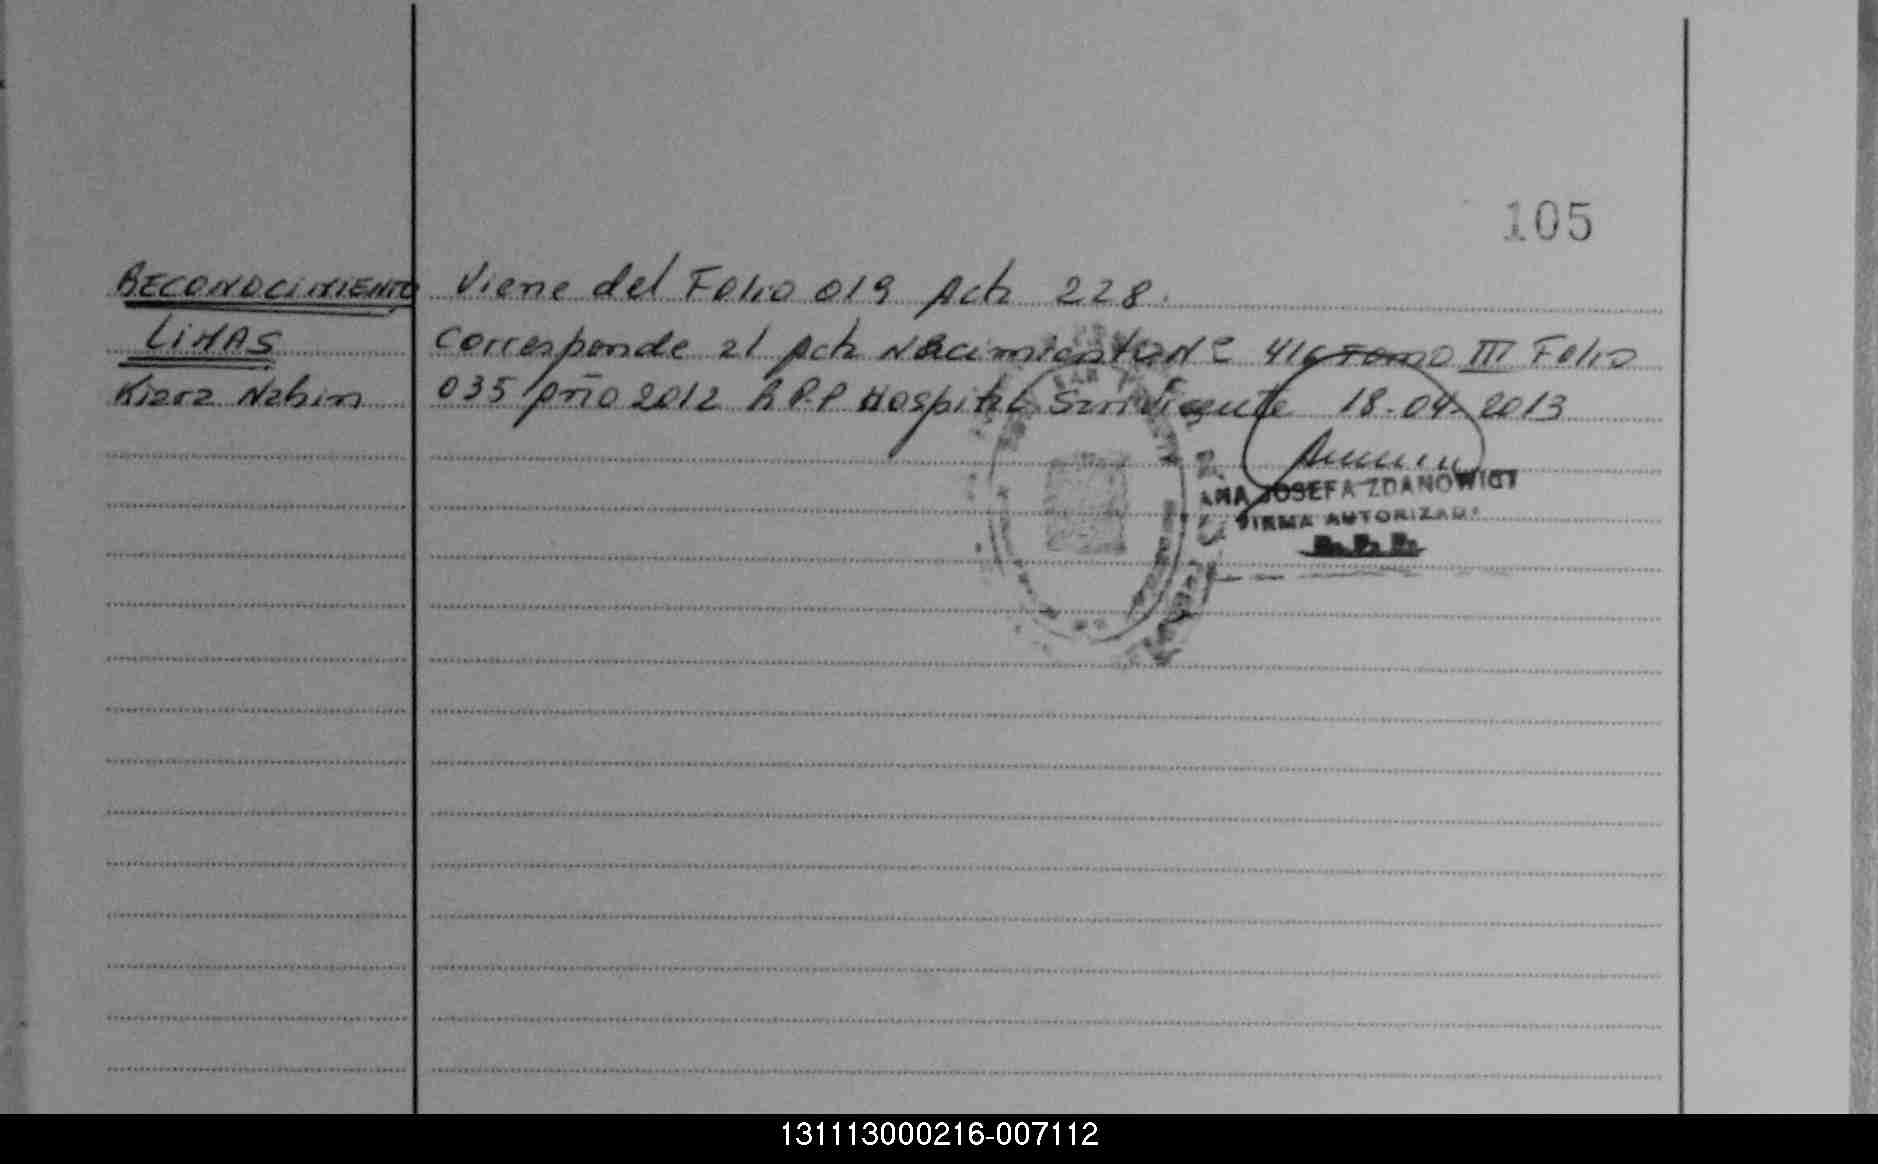 105
RECONOCIMIENTO Viene del Folio 019 Acta 228.
LIMAS Corresponde al Acta Nacimiento Nº 416 Tomo III Folio
Kiara Nahir 035 Año 2012 R.P.P Hospital San Vicente 18-04-2013
ANA JOSEFA ZDANOWICT
FIRMA AUTORIZADA
131113000216-007112